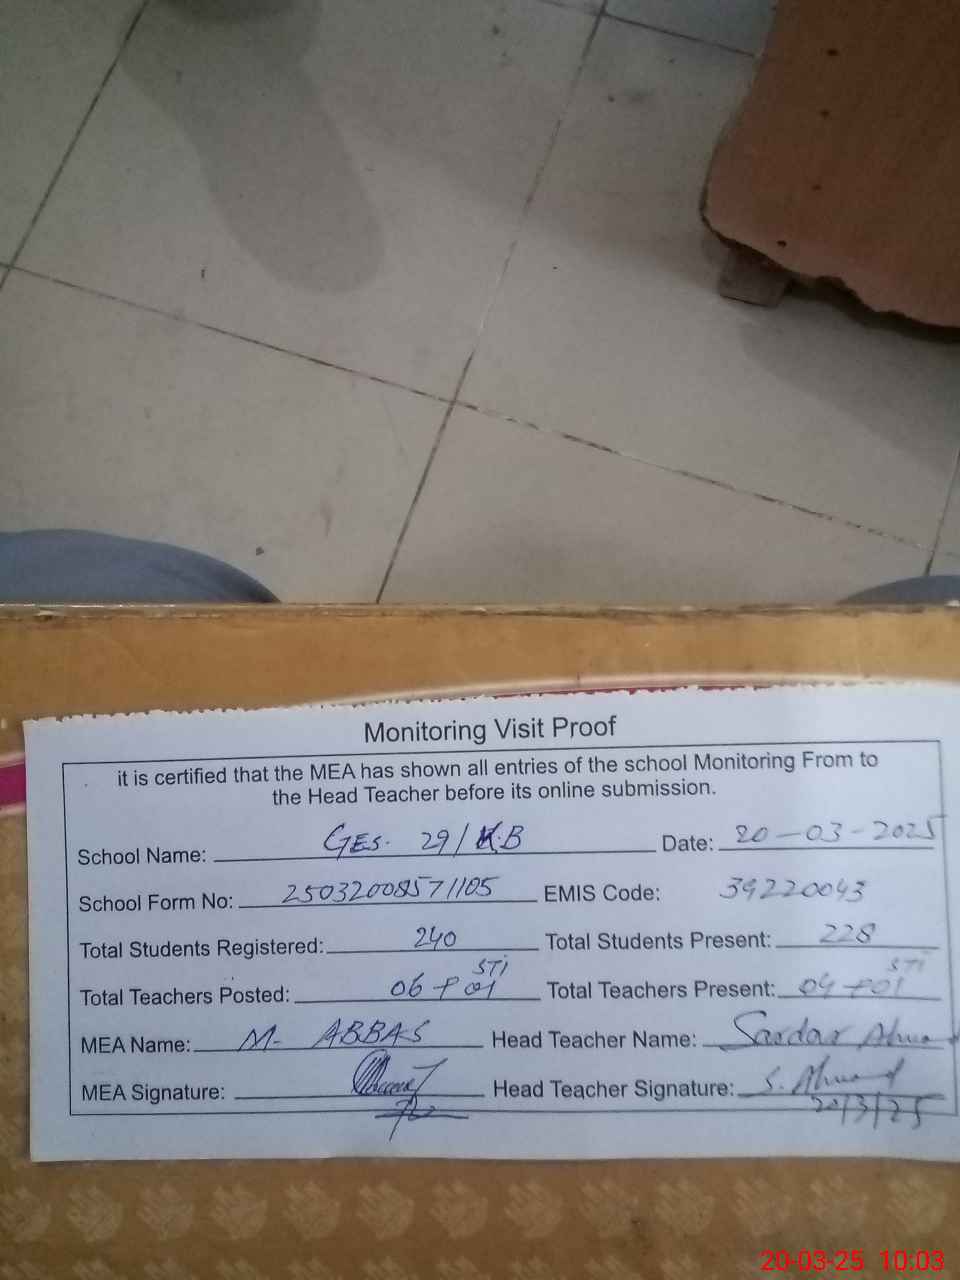 Monitoring Visit Proof
it is certified that the MEA has shown all entries of the school Monitoring From to
the Head Teacher before its online submission.
School Name: GES. 29/K.B Date: 20-03-2025
School Form No: 25032008571105 EMIS Code: 39220043
Total Students Registered: 240 Total Students Present: 228
Total Teachers Posted: 06+01 STI Total Teachers Present: 04+01 STI
MEA Name: M. ABBAS Head Teacher Name: Sardar Ahmad
MEA Signature: Head Teacher Signature: S. Ahmad
20/3/25
20-03-25 10:03